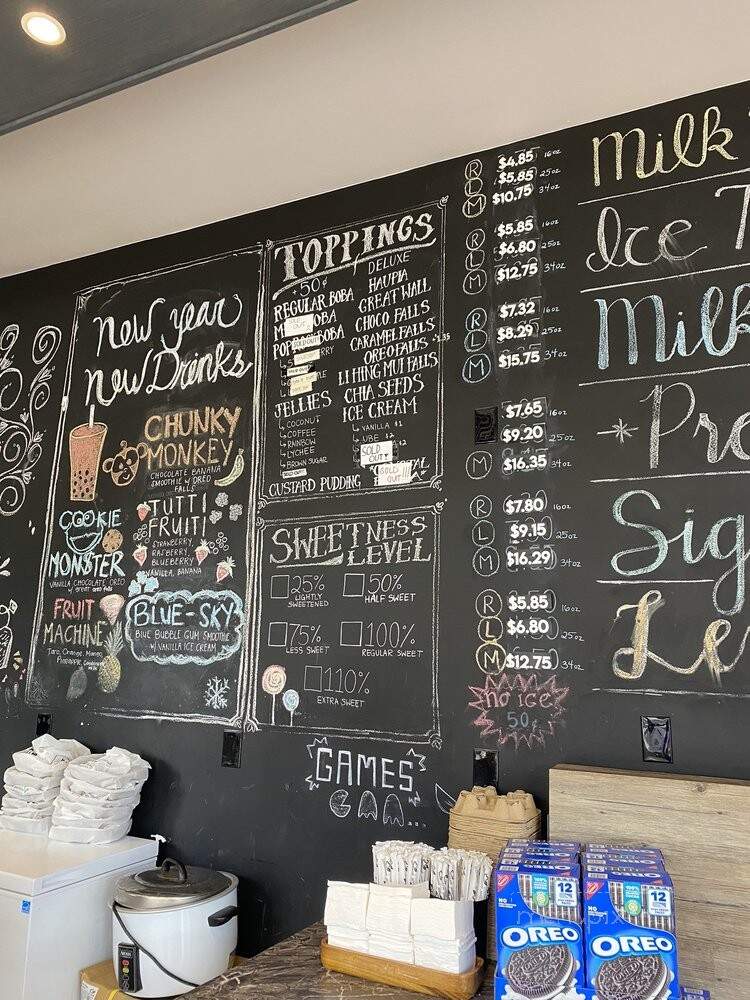 new year
new Drinks
CHUNKY
MONKEY
CHOCOLATE BANANA
SMOOTHIE w/ OREO
FALLS
COOKIE
MONSTER
VANILLA CHOCOLATE OREO
w/ great oreo falls
TUTTI
FRUITI
STRAWBERRY,
RASPBERRY,
BLUEBERRY
VANILLA, BANANA
FRUIT
MACHINE
Taro, Orange, Mango,
BLUE-SKY
BLUE BUBBLE GUM SMOOTHIE
w/ VANILLA ICE CREAM
TOPPINGS
+50¢
REGULAR BOBA
OBA
BOBA
SOLD OUT
JELLIES
COCONUT
COFFEE
RAINBOW
LYCHEE
BROWN SUGAR
CUSTARD PUDDING
DELUXE
HAUPIA
GREAT WALL
CHOCO FALLS
CARAMEL FALLS
OREO FALLS
LI HING MUI FALLS
CHIA SEEDS
ICE CREAM
VANILLA $1
UBE
SOLD
OUT!
SOLD
OUT!!!
SWEETNESS
LEVEL
25%
LIGHTLY
SWEETENED
50%
HALF SWEET
75%
LESS SWEET
100%
REGULAR SWEET
110%
EXTRA SWEET
GAMES
R $4.85 16oz
L $5.85 25oz
M $10.75 34oz
R $5.85 16oz
L $6.80 25oz
M $12.75 34oz
R $7.32 16oz
L $8.29 25oz
M $15.75 34oz
$7.65 16oz
$9.20 25oz
M $16.35 34oz
R $7.80 16oz
L $9.15 25oz
M $16.29 34oz
R $5.85 16oz
L $6.80 25oz
M $12.75 34oz
no ice
50¢
Milk
Ice T
Milk
Pro
Sig
Le
12
OREO
12
OREO